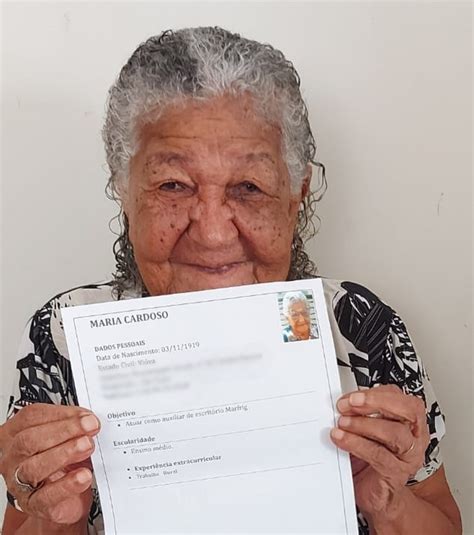 MARIA CARDOSO
DADOS PESSOAIS
Data de Nascimento: 03/11/1919
Estado Civil: Viúva
Objetivo
Atuar como auxiliar de escritório Marfrig
Escolaridade
Ensino médio.
Experiência extracurricular
Trabalho Rural